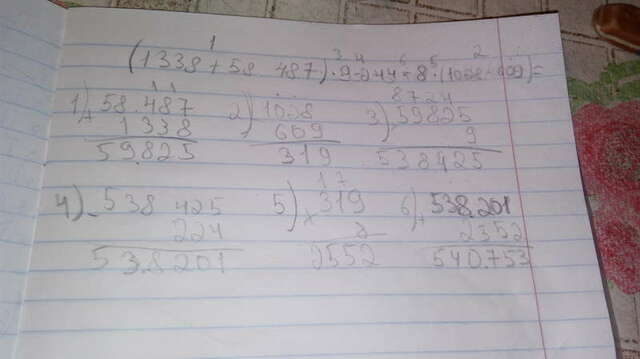 1 3 4 6 5 2
(1338 + 58 487) · 9 - 244 + 8 · (1028 - 609) =
1) 58.487 2) 1028 3) 59825
+ 1338 609 9
59.825 319 538425
4) - 538 425 5) × 319 6) + 538.201
224 2352
538201 2552 540.753